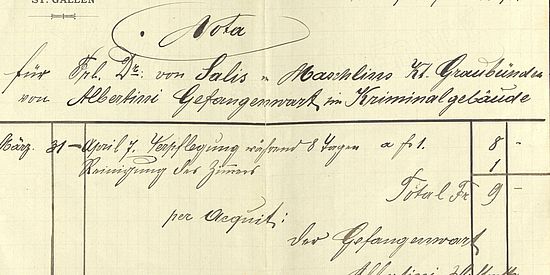 ST. GALLEN
Nota
für Frl. Dr. von Salis Maschlins Kt. Graubünden
von Albertini Gefangenwart im Kriminalgebäude
März. 31 – April 7. Verpflegung während 8 Tagen a fr 1. 8 –
Reinigung des Zimers 1
Total Fr 9 –
per Acquit:
Der Gefangenwart
Albertini